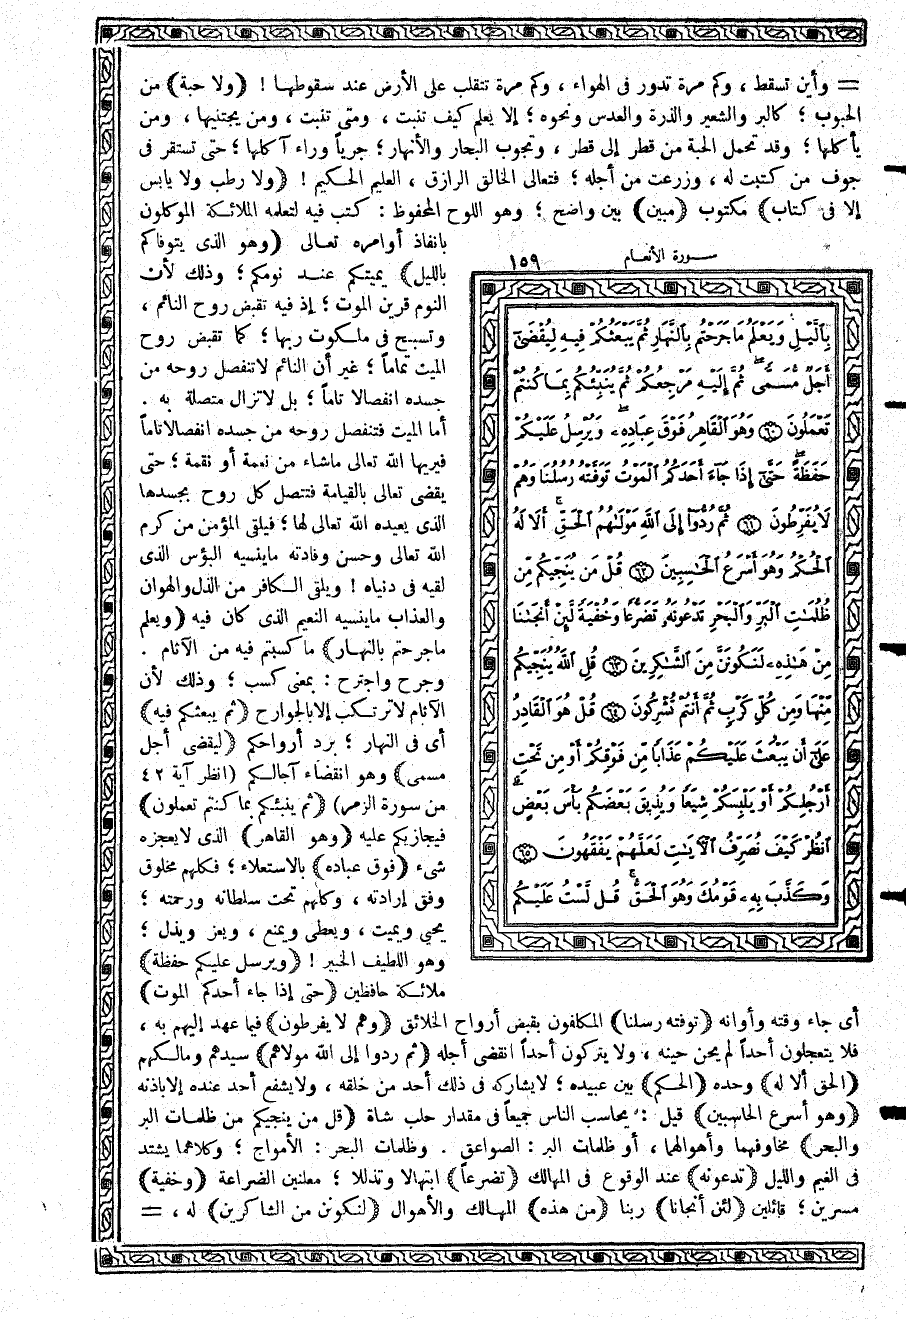 = وأين تسقط ، وكم مرة تدور فى الهواء ، وكم مرة تتقلب على الأرض عند سقوطها ! (ولا حبة) من
الحبوب ؛ كالبر والشعير والذرة والعدس ونحوه ؛ إلا يعلم كيف تنبت ، ومتى تنبت ، ومن يجتنيها ، ومن
يأكلها ؛ وقد تحمل الحبة من قطر إلى قطر ، وتجوب البحار والأنهار ؛ جرياً وراء آكلها ؛ حتى تستقر فى
جوف من كتبت له ، وزرعت من أجله ؛ فتعالى الخالق الرازق ، العليم الحكيم ! (ولا رطب ولا يابس
إلا فى كتاب) مكتوب (مبين) بين واضح ؛ وهو اللوح المحفوظ : كتب فيه لتعلمه الملائكة الموكلون
بانفاذ أوامره تعالى (وهو الذى يتوفاكم
بالليل) يميتكم عند نومكم ؛ وذلك لأن
النوم قرين الموت ؛ إذ فيه تقبض روح النائم ،
وتسبح فى ملكوت ربها ؛ كما تقبض روح
الميت تماماً ؛ غير أن النائم لا تنفصل روحه من
جسده انفصالا تاماً ؛ بل لا تزال متصلة به .
أما الميت فتنفصل روحه من جسده انفصالا تاماً
فيريها الله تعالى ماشاء من نعمة أو نقمة ؛ حتى
يقضى تعالى بالقيامة فتتصل كل روح بجسدها
الذى يعيده الله تعالى لها ؛ فيلقى المؤمن من كرم
الله تعالى وحسن وفادته ماينسيه البؤس الذى
لقيه فى دنياه ! ويلقى الكافر من الذل والهوان
والعذاب ماينسيه النعيم الذى كان فيه (ويعلم
ماجرحتم بالنهار) ما كسبتم فيه من الآثام .
وجرح واجترح : بمعنى كسب ؛ وذلك لأن
الآثام لا ترتكب إلا بالجوارح (ثم يبعثكم فيه)
أى فى النهار ؛ برد أرواحكم (ليقضى أجل
مسمى) وهو انقضاء آجالكم (انظر آية ٤٢
من سورة الزمر) (ثم ينبئكم بما كنتم تعملون)
فيجازيكم عليه (وهو القاهر) الذى لا يعجزه
شىء (فوق عباده) بالاستعلاء ؛ فكلهم مخلوق
وفق إرادته ، وكلهم تحت سلطانه ورحمته ؛
يحيى ويميت ، ويعطى ويمنع ، ويعز ويذل ؛
وهو اللطيف الخبير ! (ويرسل عليكم حفظة)
ملائكة حافظين (حتى إذا جاء أحدكم الموت)
سورة الأنعام ١٥٩
بِالَّيْلِ وَيَعْلَمُ مَا جَرَحْتُم بِالنَّهَارِ ثُمَّ يَبْعَثُكُمْ فِيهِ لِيُقْضَىٰٓ
أَجَلٌ مُّسَمًّى ۖ ثُمَّ إِلَيْهِ مَرْجِعُكُمْ ثُمَّ يُنَبِّئُكُم بِمَا كُنتُمْ
تَعْمَلُونَ ٦٠ وَهُوَ الْقَاهِرُ فَوْقَ عِبَادِهِۦ ۖ وَيُرْسِلُ عَلَيْكُمْ
حَفَظَةً حَتَّىٰٓ إِذَا جَآءَ أَحَدَكُمُ الْمَوْتُ تَوَفَّتْهُ رُسُلُنَا وَهُمْ
لَا يُفَرِّطُونَ ٦١ ثُمَّ رُدُّوٓا إِلَى اللَّهِ مَوْلَىٰهُمُ الْحَقِّ ۚ أَلَا لَهُ
الْحُكْمُ وَهُوَ أَسْرَعُ الْحَٰسِبِينَ ٦٢ قُلْ مَن يُنَجِّيكُم مِّن
ظُلُمَٰتِ الْبَرِّ وَالْبَحْرِ تَدْعُونَهُۥ تَضَرُّعًا وَخُفْيَةً لَّئِنْ أَنجَىٰنَا
مِنْ هَٰذِهِۦ لَنَكُونَنَّ مِنَ الشَّٰكِرِينَ ٦٣ قُلِ اللَّهُ يُنَجِّيكُم
مِّنْهَا وَمِن كُلِّ كَرْبٍ ثُمَّ أَنتُمْ تُشْرِكُونَ ٦٤ قُلْ هُوَ الْقَادِرُ
عَلَىٰٓ أَن يَبْعَثَ عَلَيْكُمْ عَذَابًا مِّن فَوْقِكُمْ أَوْ مِن تَحْتِ
أَرْجُلِكُمْ أَوْ يَلْبِسَكُمْ شِيَعًا وَيُذِيقَ بَعْضَكُم بَأْسَ بَعْضٍ ۗ
انظُرْ كَيْفَ نُصَرِّفُ الْآيَٰتِ لَعَلَّهُمْ يَفْقَهُونَ ٦٥
وَكَذَّبَ بِهِۦ قَوْمُكَ وَهُوَ الْحَقُّ ۚ قُل لَّسْتُ عَلَيْكُم
أى جاء وقته وأوانه (توفته رسلنا) المكلفون بقبض أرواح الخلائق (وهم لا يفرطون) فيما عهد إليهم به ،
فلا يتعجلون أحداً لم يحن حينه ، ولا يتركون أحداً انقضى أجله (ثم ردوا إلى الله مولاهم) سيدهم ومالكهم
(الحق ألا له) وحده (الحكم) بين عبيده ؛ لا يشاركه فى ذلك أحد من خلقه ، ولا يشفع أحد عنده إلا باذنه
(وهو أسرع الحاسبين) قيل : يحاسب الناس جميعاً فى مقدار حلب شاة (قل من ينجيكم من ظلمات البر
والبحر) مخاوفهما وأهوالهما ، أو ظلمات البر : الصواعق . وظلمات البحر : الأمواج ؛ وكلاهما يشتد
فى الغيم والليل (تدعونه) عند الوقوع فى المهالك (تضرعاً) ابتهالا وتذللا ؛ معلنين الضراعة (وخفية)
مسرين ؛ قائلين (لئن أنجانا) ربنا (من هذه) المهالك والأهوال (لنكونن من الشاكرين) له ، =